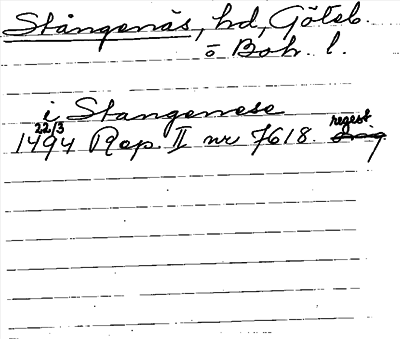 Stångenäs, hd, Göteb.
o Boh. l.
i Stangenese
22/3 regest
1494 Rep. II nr 7618. Orig